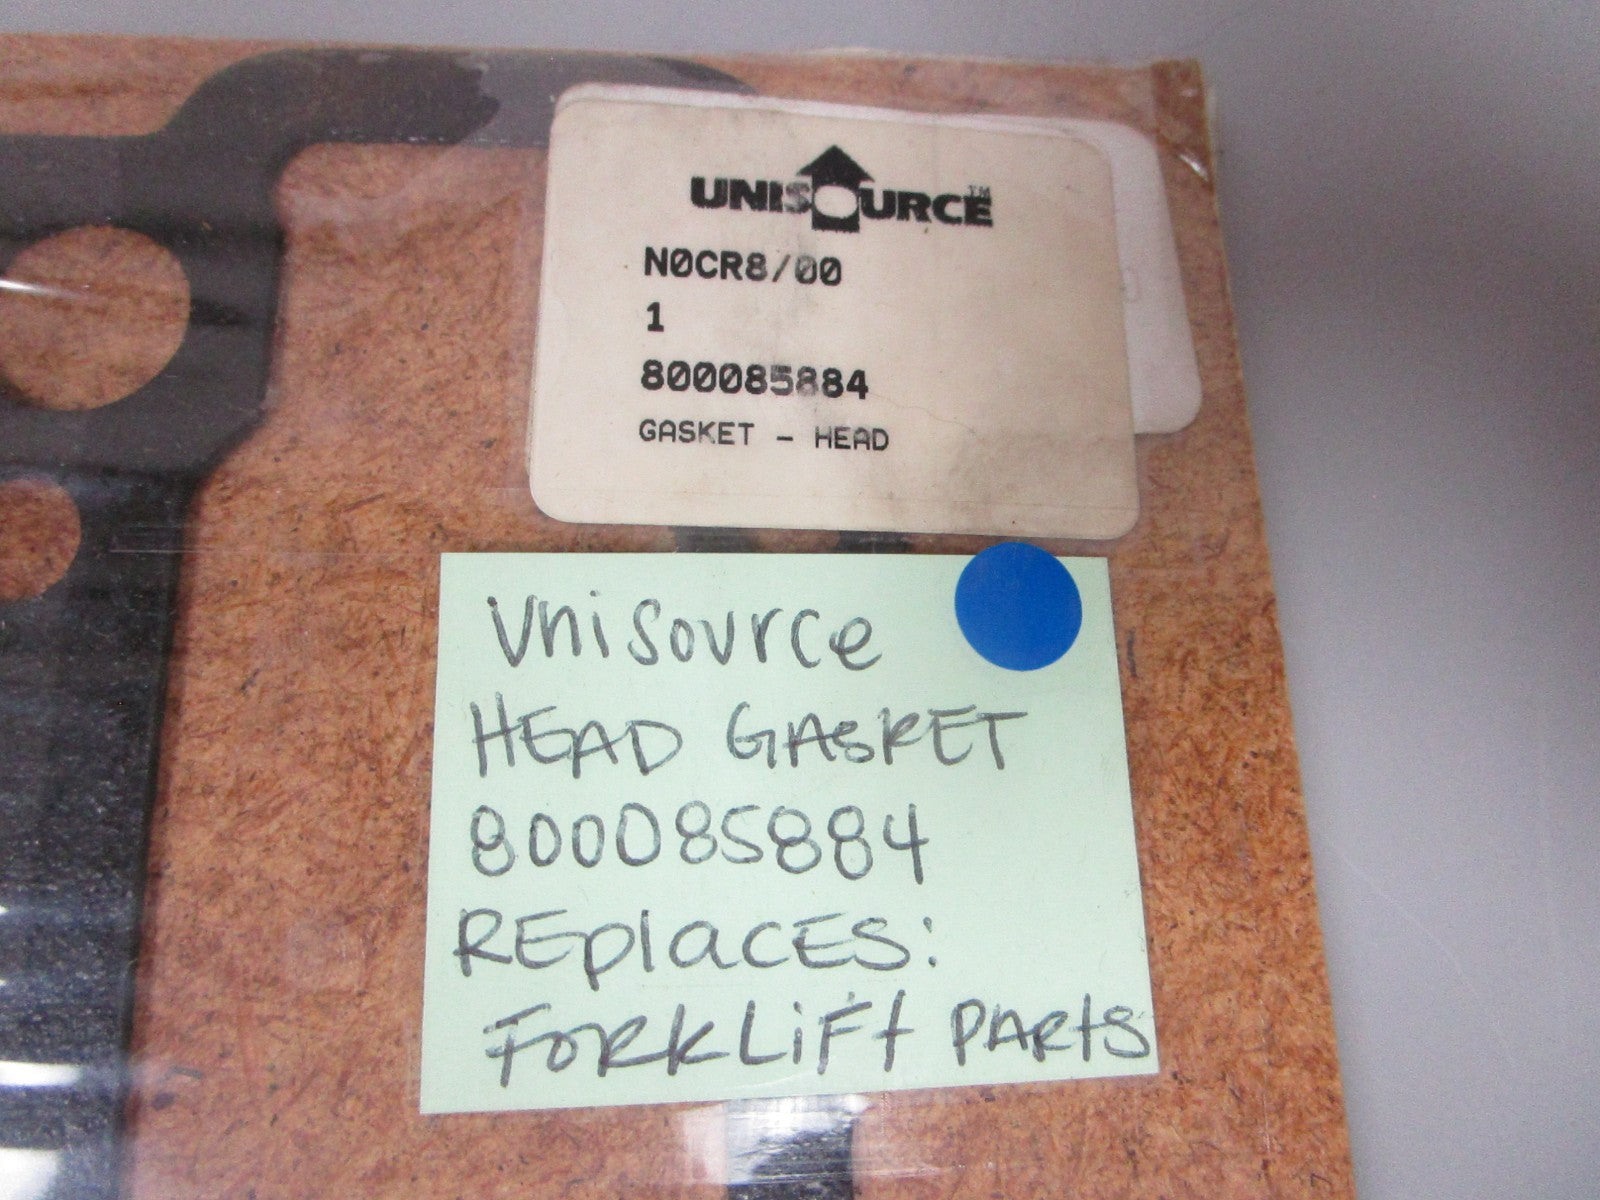 UNISOURCE™
N0CR8/00
1
800085884
GASKET - HEAD
Unisource
HEAD GASKET
800085884
REplaCES:
ForkLiFt PARts